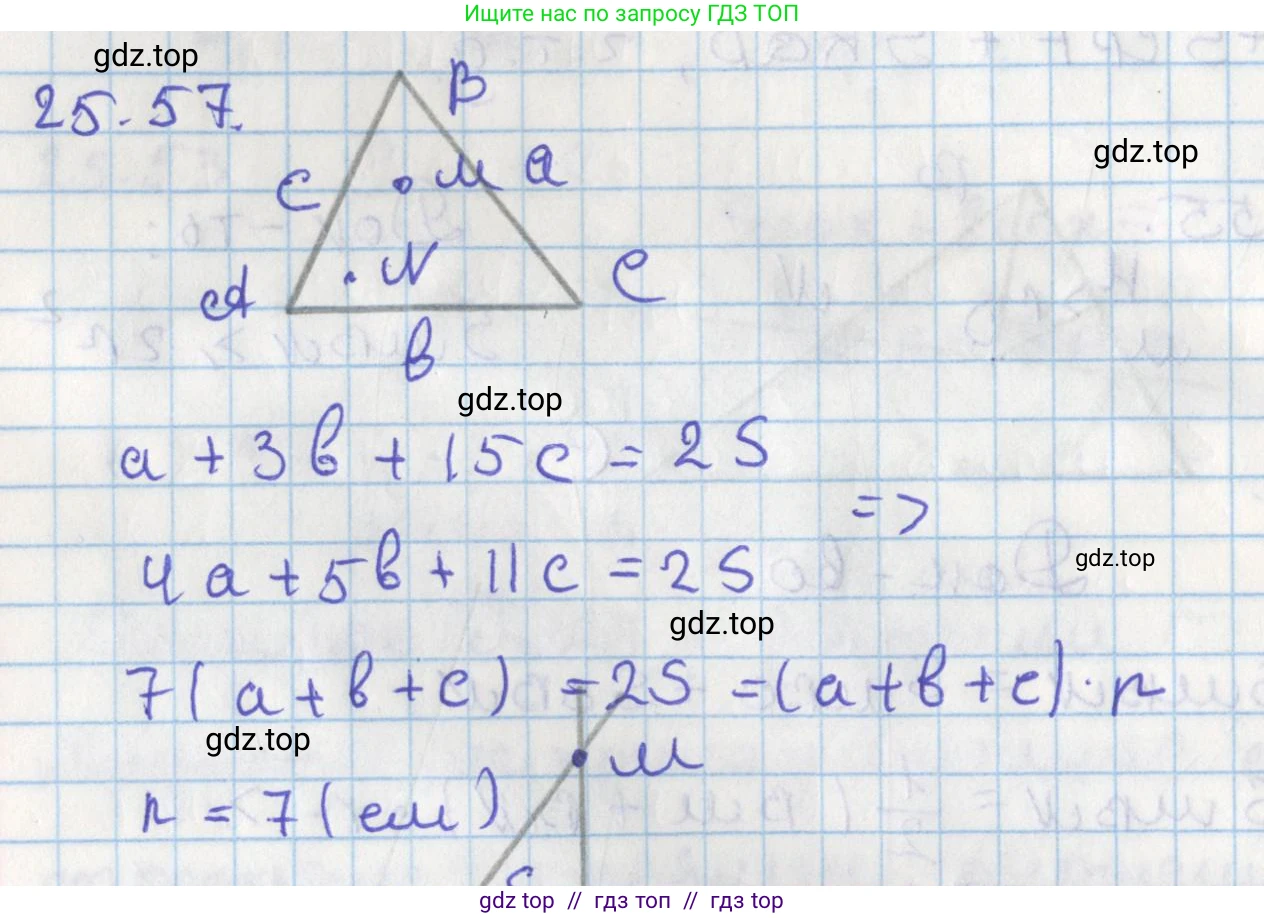 Ищите нас по запросу ГДЗ ТОП
gdz.top
25.57.
B
gdz.top
c
M
a
N
A
C
b
gdz.top
a + 3b + 15c = 2S
=>
4a + 5b + 11c = 2S
gdz.top
gdz.top
7(a+b+c) = 2S = (a+b+c)·r
gdz.top
M
r = 7 (см)
gdz top // гдз топ // гдз top